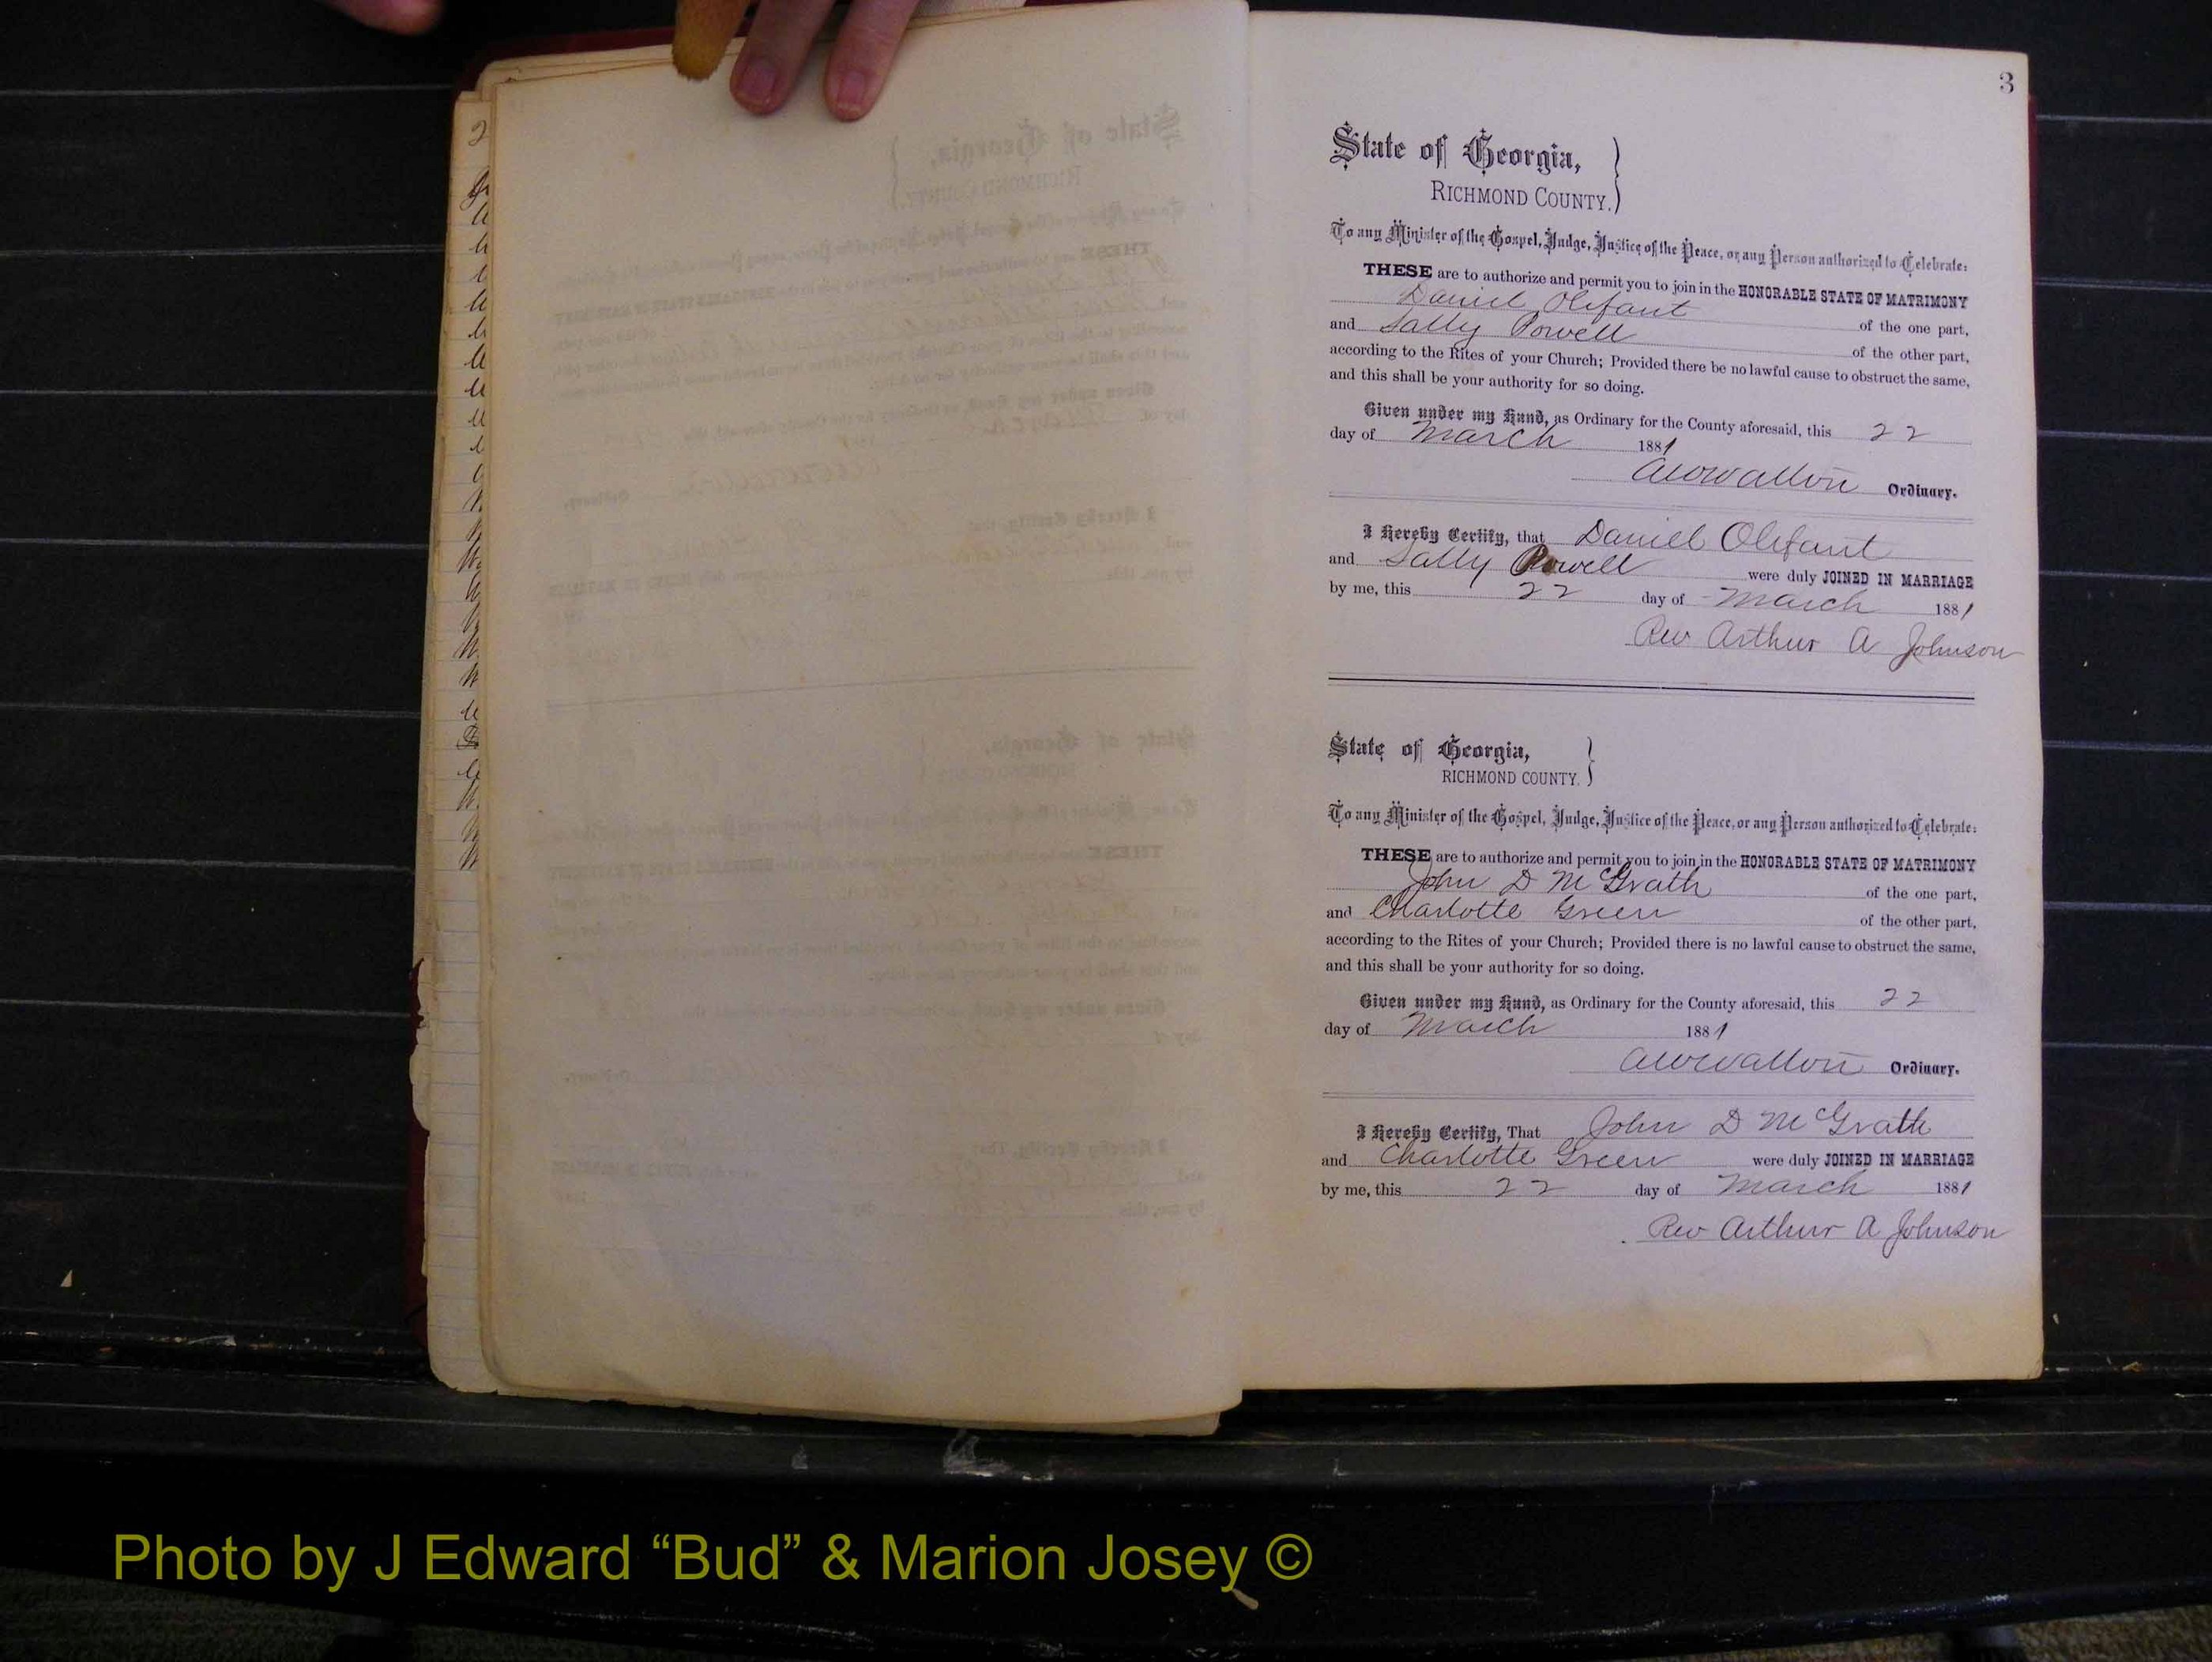 3
State of Georgia,
RICHMOND COUNTY.
To any Minister of the Gospel, Judge, Justice of the Peace, or any Person authorized to Celebrate:
THESE are to authorize and permit you to join in the HONORABLE STATE OF MATRIMONY
Daniel Olifant of the one part,
and Sally Powell of the other part,
according to the Rites of your Church; Provided there be no lawful cause to obstruct the same,
and this shall be your authority for so doing.
Given under my Hand, as Ordinary for the County aforesaid, this 22
day of March 1881
Ordinary.
I Hereby Certify, that Daniel Olifant
and Sally Powell were duly JOINED IN MARRIAGE
by me, this 22 day of March 1881
Rev Arthur A Johnson
State of Georgia,
RICHMOND COUNTY.
To any Minister of the Gospel, Judge, Justice of the Peace, or any Person authorized to Celebrate:
THESE are to authorize and permit you to join in the HONORABLE STATE OF MATRIMONY
John D McGrath of the one part,
and Charlotte Green of the other part,
according to the Rites of your Church; Provided there is no lawful cause to obstruct the same,
and this shall be your authority for so doing.
Given under my Hand, as Ordinary for the County aforesaid, this 22
day of March 1881
Ordinary.
I Hereby Certify, That John D McGrath
and Charlotte Green were duly JOINED IN MARRIAGE
by me, this 22 day of March 1881
Rev Arthur A Johnson
Photo by J Edward “Bud” & Marion Josey ©